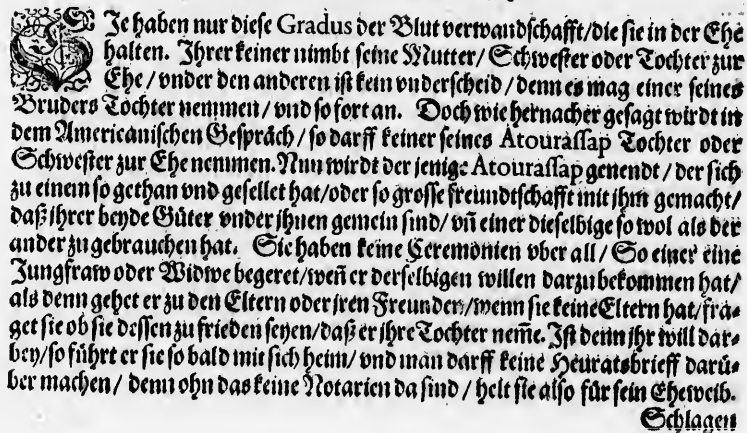 SJe haben nur diese Gradus der Blutverwandschafft/die sie in der Ehe
halten. Jhrer keiner nimbt seine Mutter/ Schwester oder Tochter zur
Ehe / vnder den anderen ist kein vnderscheid / denn es mag einer seines
Bruders Tochter nemmen/ vnd so fort an. Doch wie hernacher gesagt wirdt in
dem Americanischen Gespräch/ so darff keiner seines Atourassap Tochter oder
Schwester zur Ehe nemmen. Nun wirdt der jenige Atourassap genendt / der sich
zu einem so gethan vnd gesellet hat/oder so grosse freundtschafft mit ihm gemacht/
daß ihrer beyde Güter vnder ihnen gemein sind/ vñ einer dieselbige so wol als der
ander zu gebrauchen hat. Sie haben keine Ceremonien vber all / So einer eine
Jungfraw oder Widwe begeret/weñ er derselbigen willen darzu bekommen hat/
als denn gehet er zu den Eltern oder jren Freunden/wenn sie keine Eltern hat/ fra-
get sie ob sie dessen zu frieden seyen/daß er ihre Tochter neme. Jst denn ihr will dar-
bey/so führt er sie so bald mit sich heim/ vnd man darff keine Heuratsbrieff darü-
ber machen/ denn ohn das keine Notarien da sind / helt sie also für sein Eheweib.
Schlagen